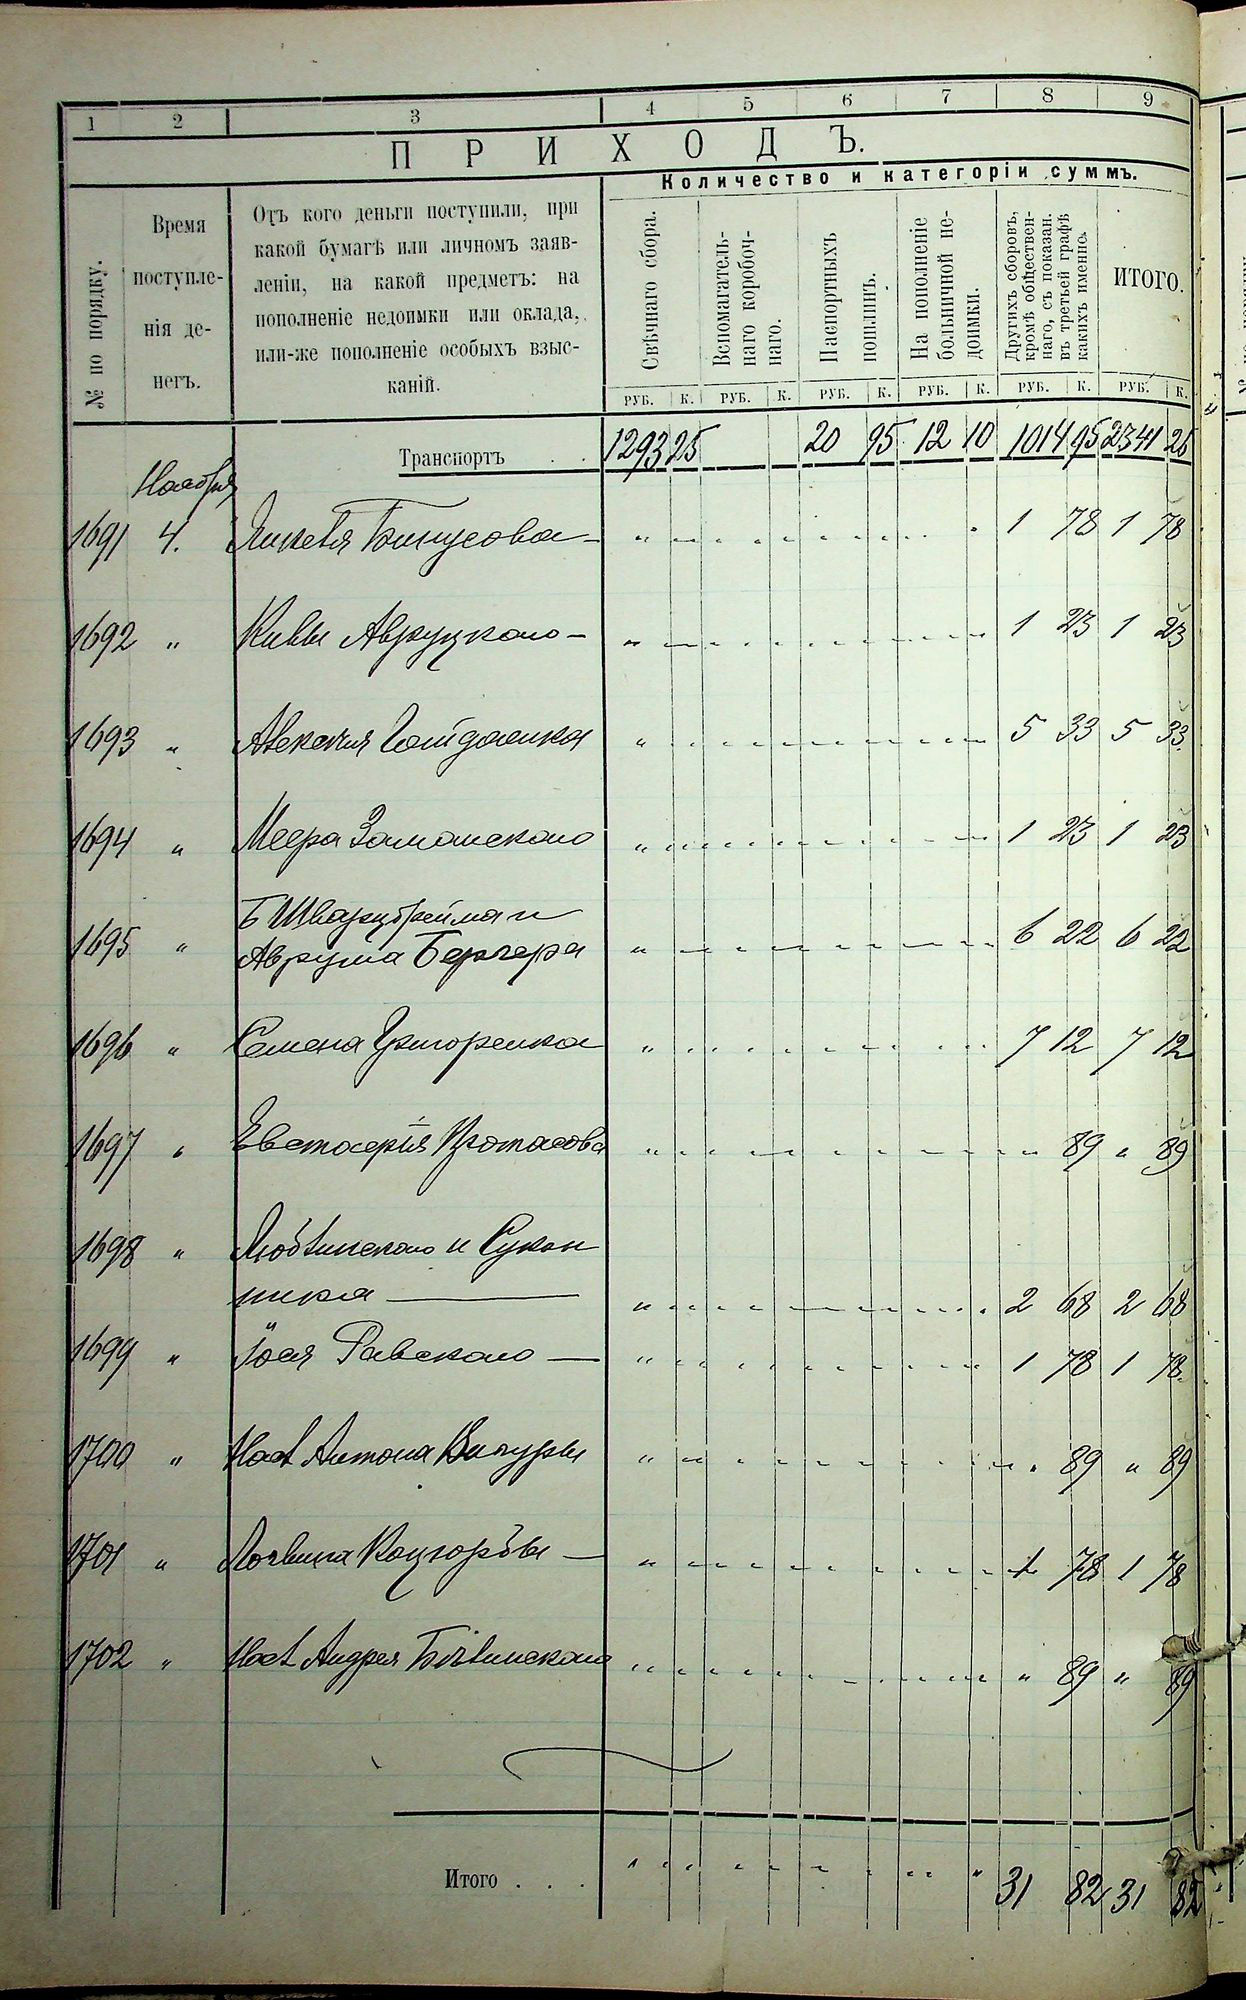 1 2 3 4 5 6 7 8 9
ПРИХОДЪ.
Количество и категоріи суммъ.
№ по порядку.
Время
поступле-
нія де-
негъ.
Отъ кого деньги поступили, при
какой бумагѣ или личномъ заяв-
леніи, на какой предметъ: на
пополненіе недоимки или оклада,
или-же пополненіе особыхъ взыс-
каній.
Свѣчнаго сбора.
Вспомагатель-
наго коробоч-
наго.
Паспортныхъ
пошлинъ.
На пополненіе
больничной не-
доимки.
Другихъ сборовъ,
кромѣ обществен-
наго, съ показан.
въ третьей графѣ
какихъ именно.
ИТОГО.
РУБ. К. РУБ. К. РУБ. К. РУБ. К. РУБ. К. РУБ. К.
Транспортъ . . 1293 25 20 95 12 10 1014 95 2341 25
Ноября
1691 4. 1 78 1 78
1692 " Кивы Авруцкого — 1 23 1 23
1693 " Гайдаенка 5 33 5 33
1694 " Меера Заманского 1 23 1 23
1695 " Б Шварцбреймаи
Аврума Бергера 6 22 6 22
1696 " Семена Григоренка 7 12 7 12
1697 " Протасова " 89 " 89
1698 " и Сукон
ника — 2 68 2 68
1699 " Іося Равского — 1 78 1 78
1700 " Антона " 89 " 89
1701 " 1 78 1 78
1702 " Андрея " 89 " 89
Итого . . . 31 82 31 82